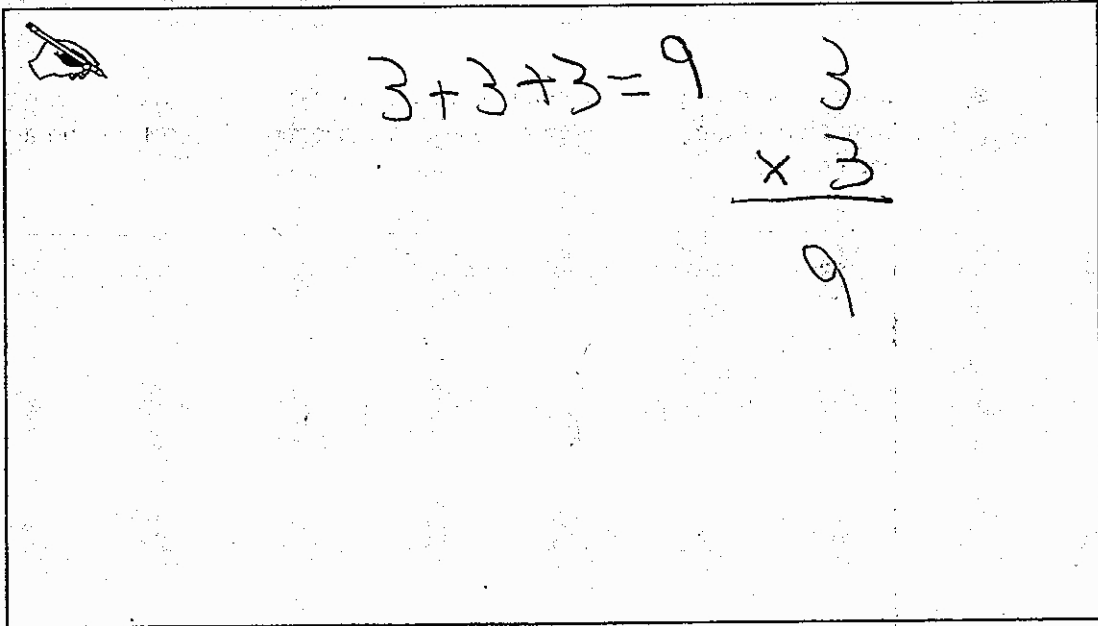 3+3+3=9
3
× 3
9